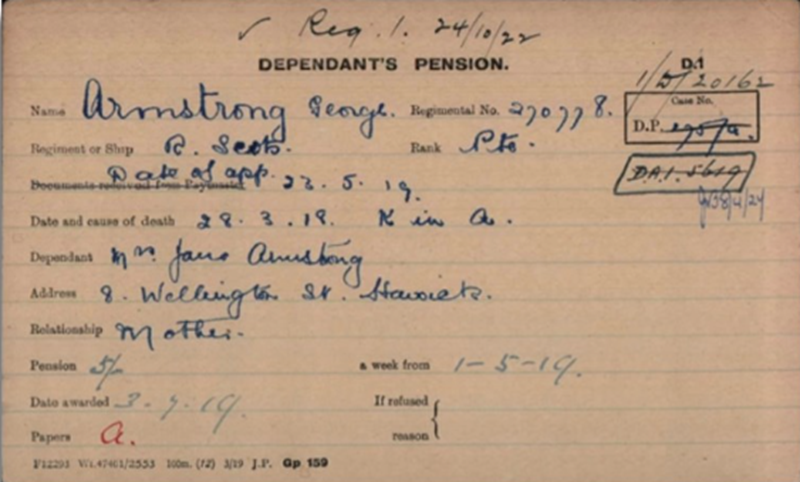 ✓ Reg. 1. 24/10/22
DEPENDANT'S PENSION. D.1
1/D/20162
Name Armstrong George. Regimental No. 270778. Case No.
D.P.
Regiment or Ship R. Scots. Rank Pte.
Date of app.
Documents received from Paymaster 22. 5. 19. D.A.1. 5619
Date and cause of death 28. 3. 18. K in A.
Dependant Mrs. Jane Armstrong
Address 8. Wellington St. Hawick.
Relationship Mother.
Pension 5/- a week from 1-5-19.
Date awarded 3.7.19. If refused
Papers A. reason
F12293 Wt.47461/2553 100m. (12) 3/19 J.P. Gp 159